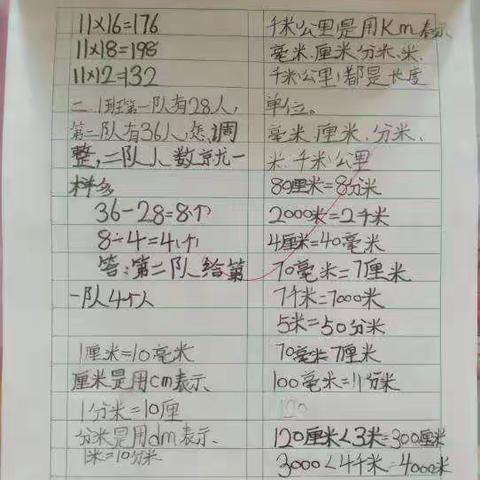 11×16=176
11×18=198
11×12=132
二.1班第一队有28人,
第二队有36人,怎调
整,二队人数京尤一
样多
36-28=8个
8÷4=4个
答:第二队给第
一队4个人
1厘米=10毫米
厘米是用cm表示.
1分米=10厘
分米是用dm表示.
1米=10分米
千米(公里)是用Km表示
毫米.厘米分米.米.
千米(公里)都是长度
单位。
毫米.厘米.分米.
米.千米(公里)
80厘米=8分米
2000米=2千米
4厘米=40毫米
70毫米=7厘米
7千米=7000米
5米=50分米
70毫米=7厘米
100毫米=1分米
120
120厘米<3米=300厘米
3000<4千米=4000米